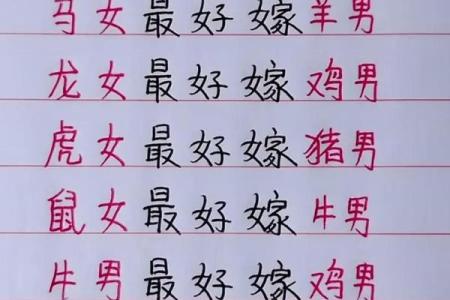 马女最好嫁羊男
龙女最好嫁鸡男
虎女最好嫁猪男
鼠女最好嫁牛男
牛男最好嫁鸡男